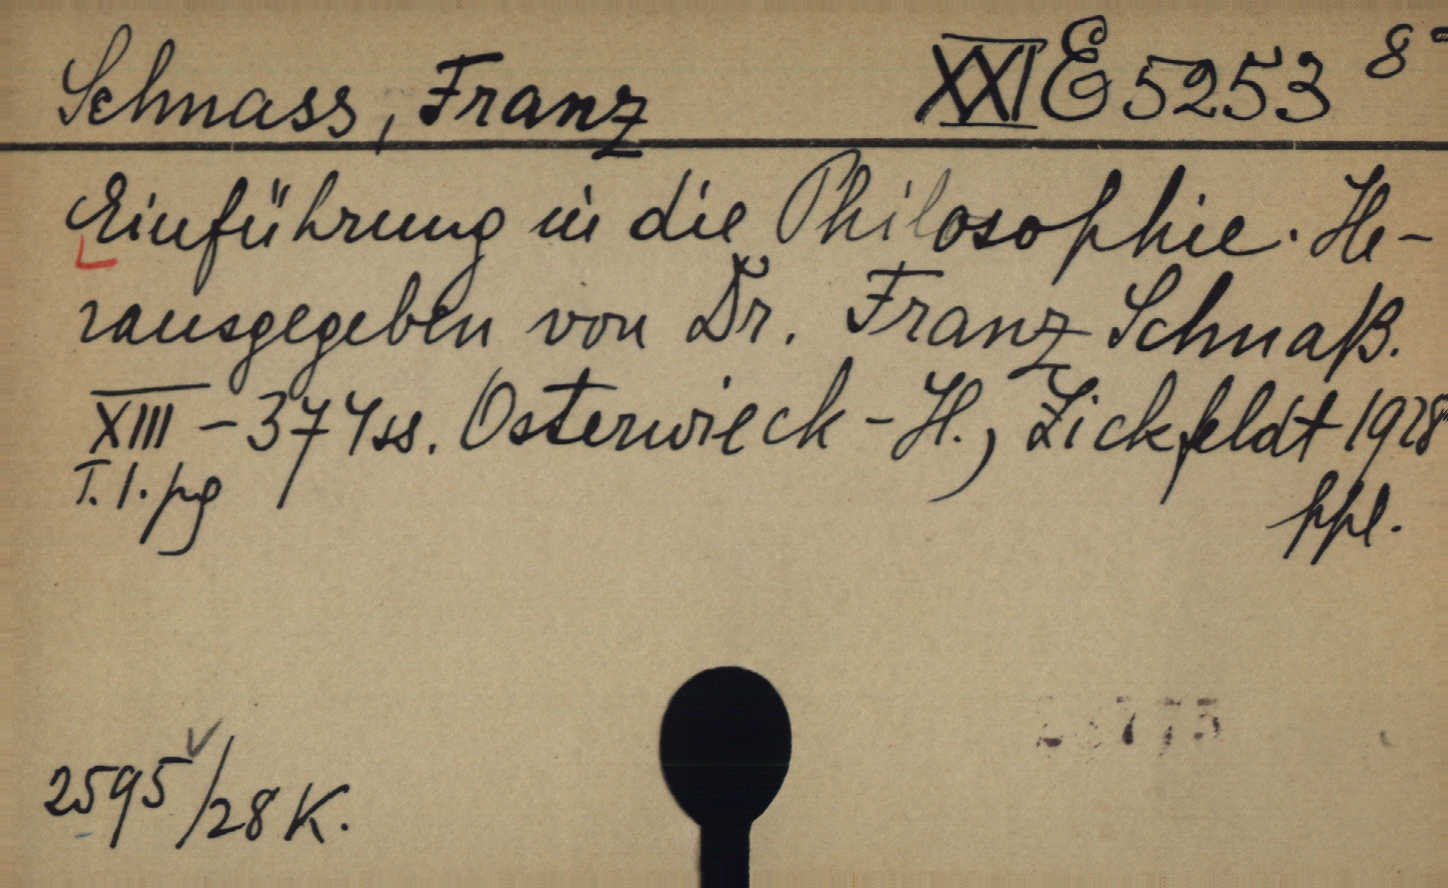 Schnass, Franz XXI E 5253 8°
Einführung in die Philosophie. He-
rausgegeben von Dr. Franz Schnaß.
XIII - 374 ss. Osterwieck - H., Zickfeldt 1928
T. 1. pg
ppl.
2595/28 K.